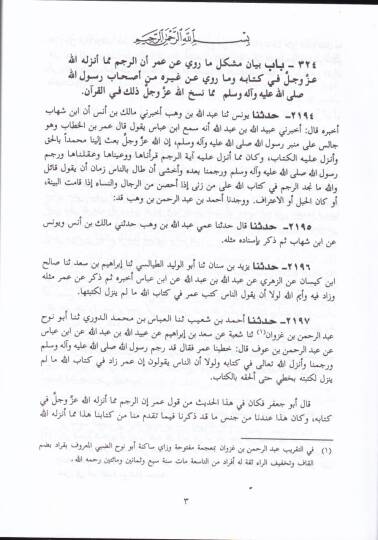 بسم الله الرحمن الرحيم
٣٢٤ - باب بيان مشكل ما روي عن عمر أن الرجم مما أنزله الله
عزّ وجلّ في كتابه وما روي عن غيره من أصحاب رسول الله
صلى الله عليه وآله وسلم مما نسخ الله عزّ وجلّ ذلك في القرآن.
٢١٩٤- حدثنا يونس ثنا عبد الله بن وهب أخبرني مالك بن أنس أن ابن شهاب
أخبره قال: أخبرني عبيد الله بن عبد الله أنه سمع ابن عباس يقول قال عمر بن الخطاب وهو
جالس على منبر رسول الله صلى الله عليه وآله وسلم، إن الله عزّ وجلّ بعث إلينا محمداً بالحق
وأنزل عليه الكتاب، وكان مما أنزل عليه آية الرجم قرأناها ووعيناها وعقلناها ورجم
رسول الله صلى الله عليه وآله وسلم ورجمنا بعده وأخشى أن طال بالناس زمان أن يقول قائل
والله ما نجد الرجم في كتاب الله على من زنى إذا أحصن من الرجال والنساء إذا قامت البينة،
أو كان الحبل أو الاعتراف. ووجدنا أحمد بن عبد الرحمن بن وهب قد:
٢١٩٥- حدثنا قال حدثنا عمي عبد الله بن وهب حدثني مالك بن أنس ويونس
عن ابن شهاب ثم ذكر بإسناده مثله.
٢١٩٦- حدثنا يزيد بن سنان ثنا أبو الوليد الطيالسي ثنا إبراهيم بن سعد ثنا صالح
ابن كيسان عن الزهري عن عبيد الله بن عبد الله عن ابن عباس أخبره ثم ذكر عن عمر مثله
وزاد فيه وأيم الله لولا أن يقول الناس كتب عمر في كتاب الله ما لم ينزل لكتبتها.
٢١٩٧- حدثنا أحمد بن شعيب ثنا العباس بن محمد الدوري ثنا أبو نوح
عبد الرحمن بن غزوان(١) ثنا شعبة عن سعد بن إبراهيم عن عبيد الله بن عبد الله عن ابن عباس
عن عبد الرحمن بن عوف قال: خطبنا عمر فقال قد رجم رسول الله صلى الله عليه وآله وسلم
ورجمنا وأنزل الله تعالى في كتابه ولولا أن الناس يقولون إن عمر زاد في كتاب الله ما لم
ينزل لكتبته بخطي حتى ألحقه بالكتاب.
قال أبو جعفر فكان في هذا الحديث من قول عمر إن الرجم مما أنزله الله عزّ وجلّ في
كتابه، وكان هذا عندنا من جنس ما قد ذكرنا فيما تقدم منا من كتابنا هذا مما أنزله الله
(١) في التقريب عبد الرحمن بن غزوان بمعجمة مفتوحة وزاي ساكنة أبو نوح الضبي المعروف بقراد بضم
القاف وتخفيف الراء ثقة له أفراد من التاسعة مات سنة سبع وثمانين ومائتين رحمه الله.
٣